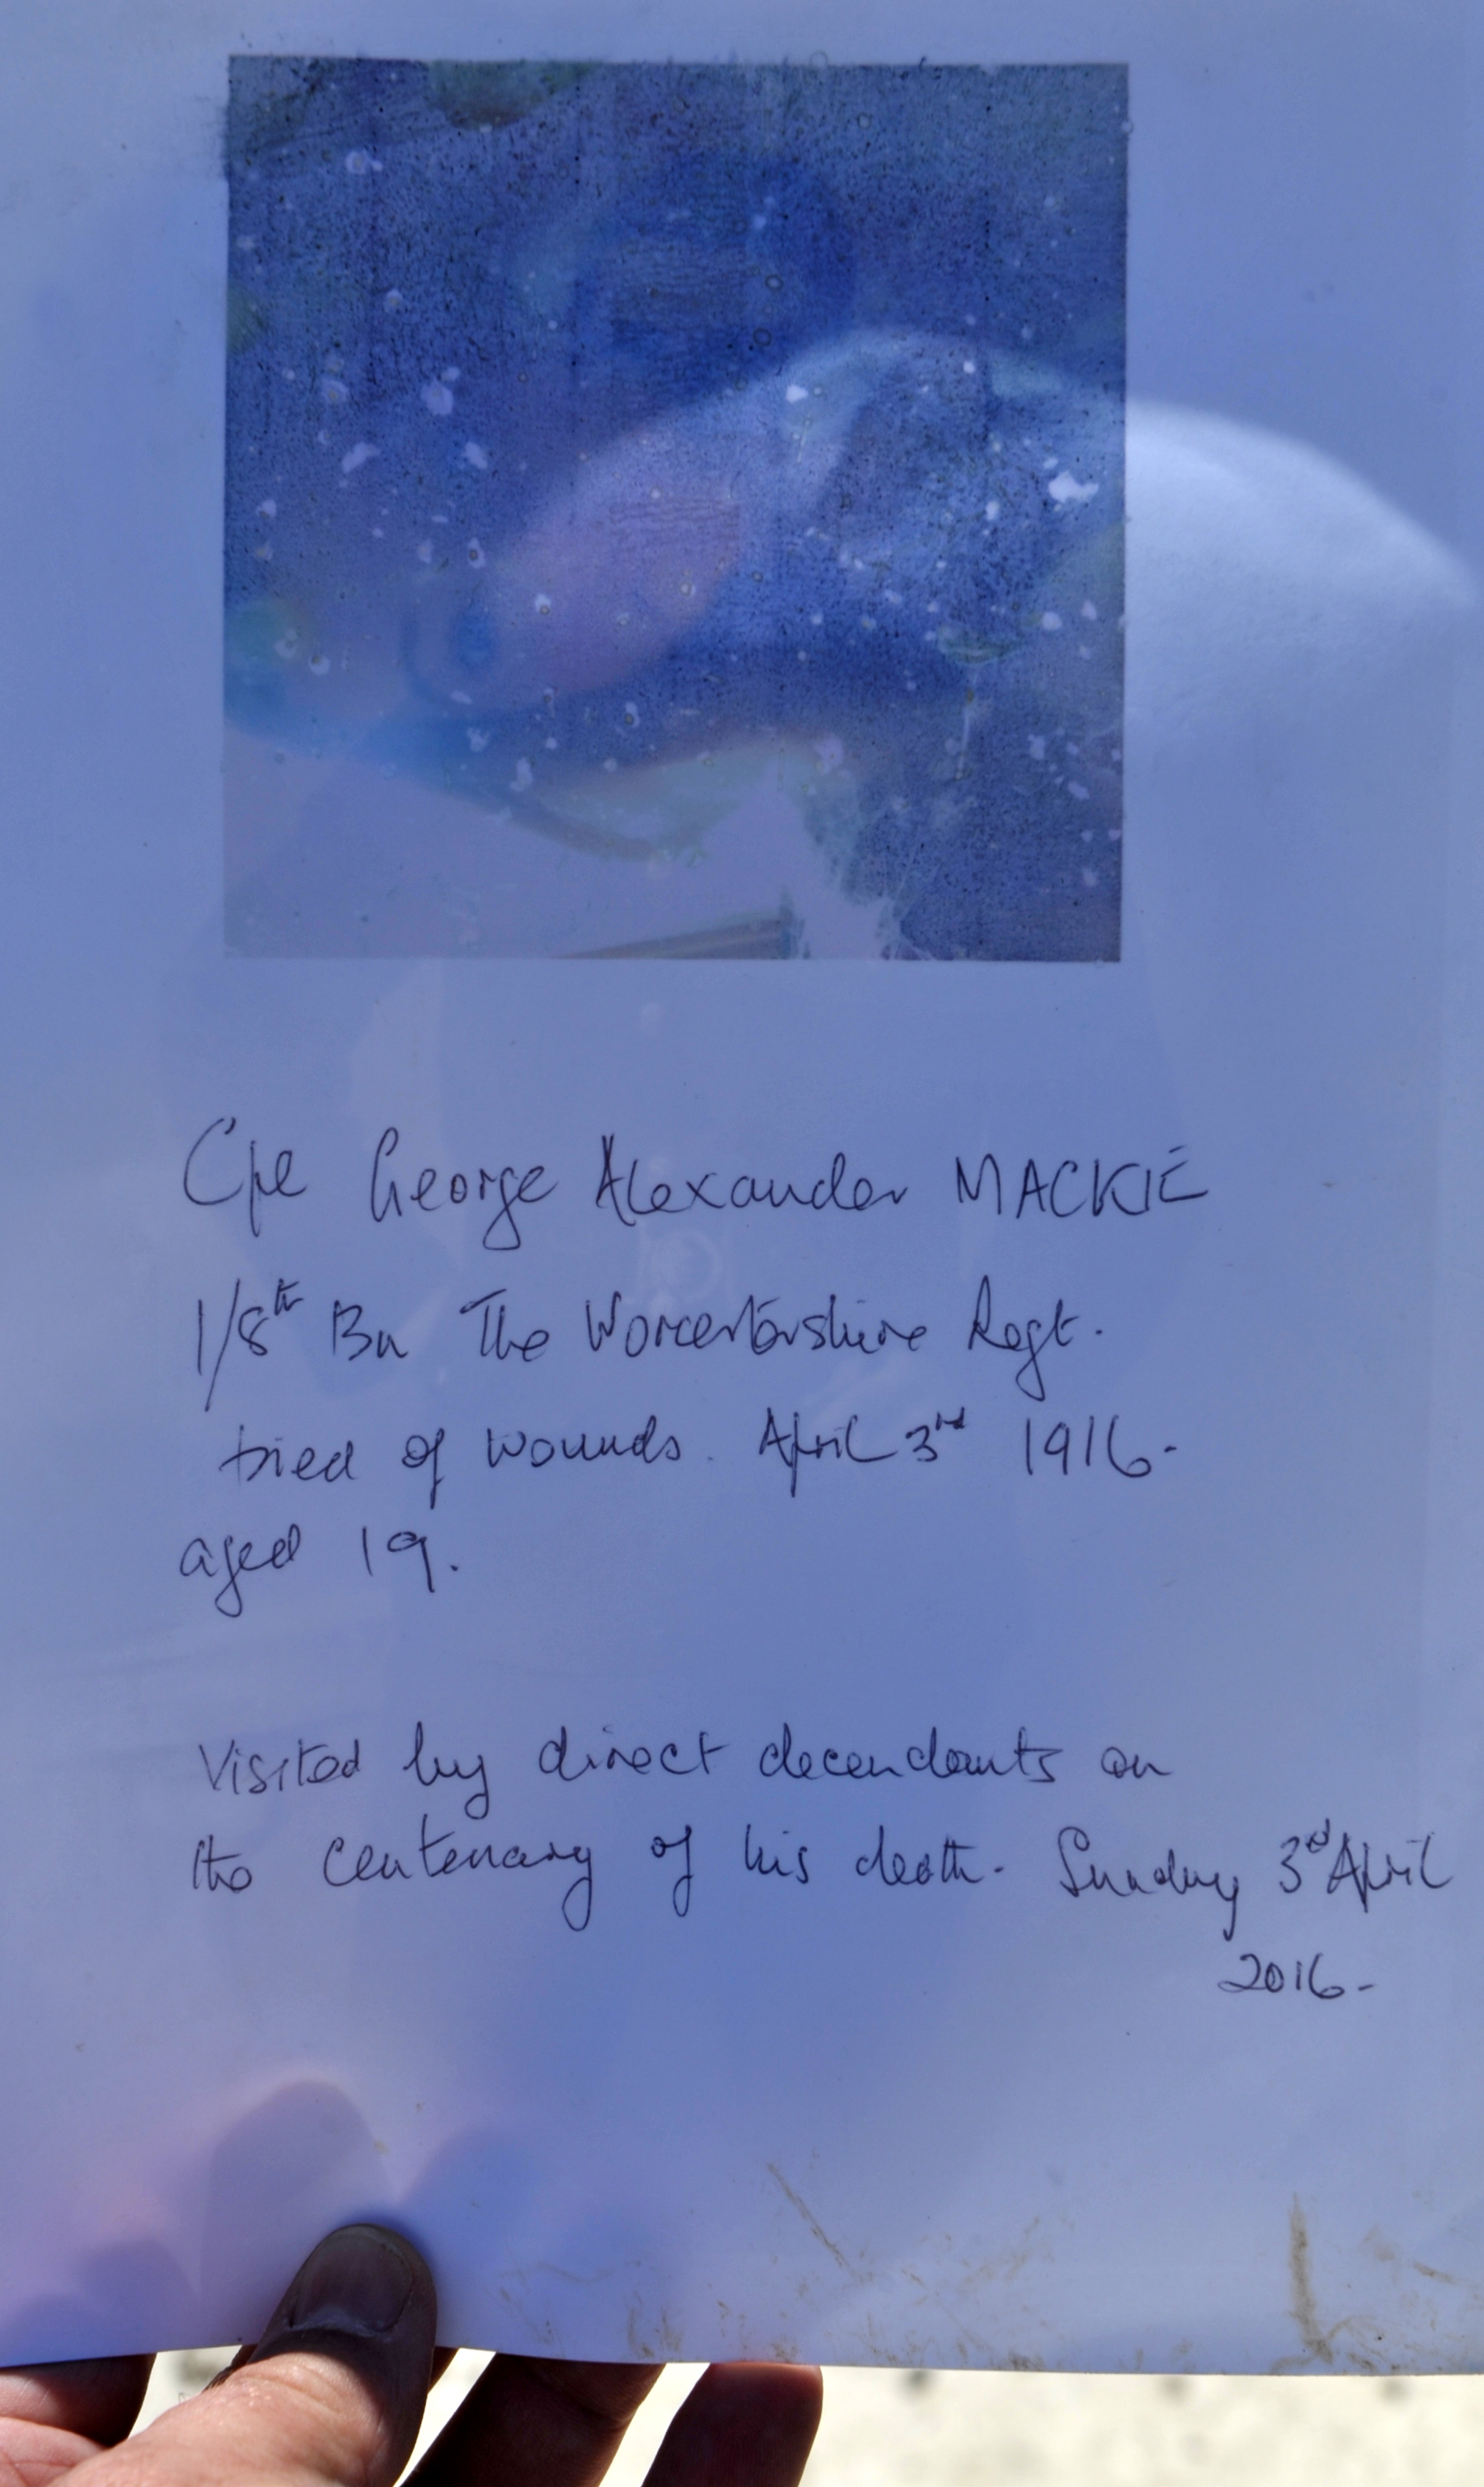 Cpl George Alexander MACKIE
1/8th Bn The Worcestershire Regt.
Died of wounds. April 3rd 1916-
aged 19.
Visited by direct decendants on
the centenary of his death- Sunday 3rd April
2016-